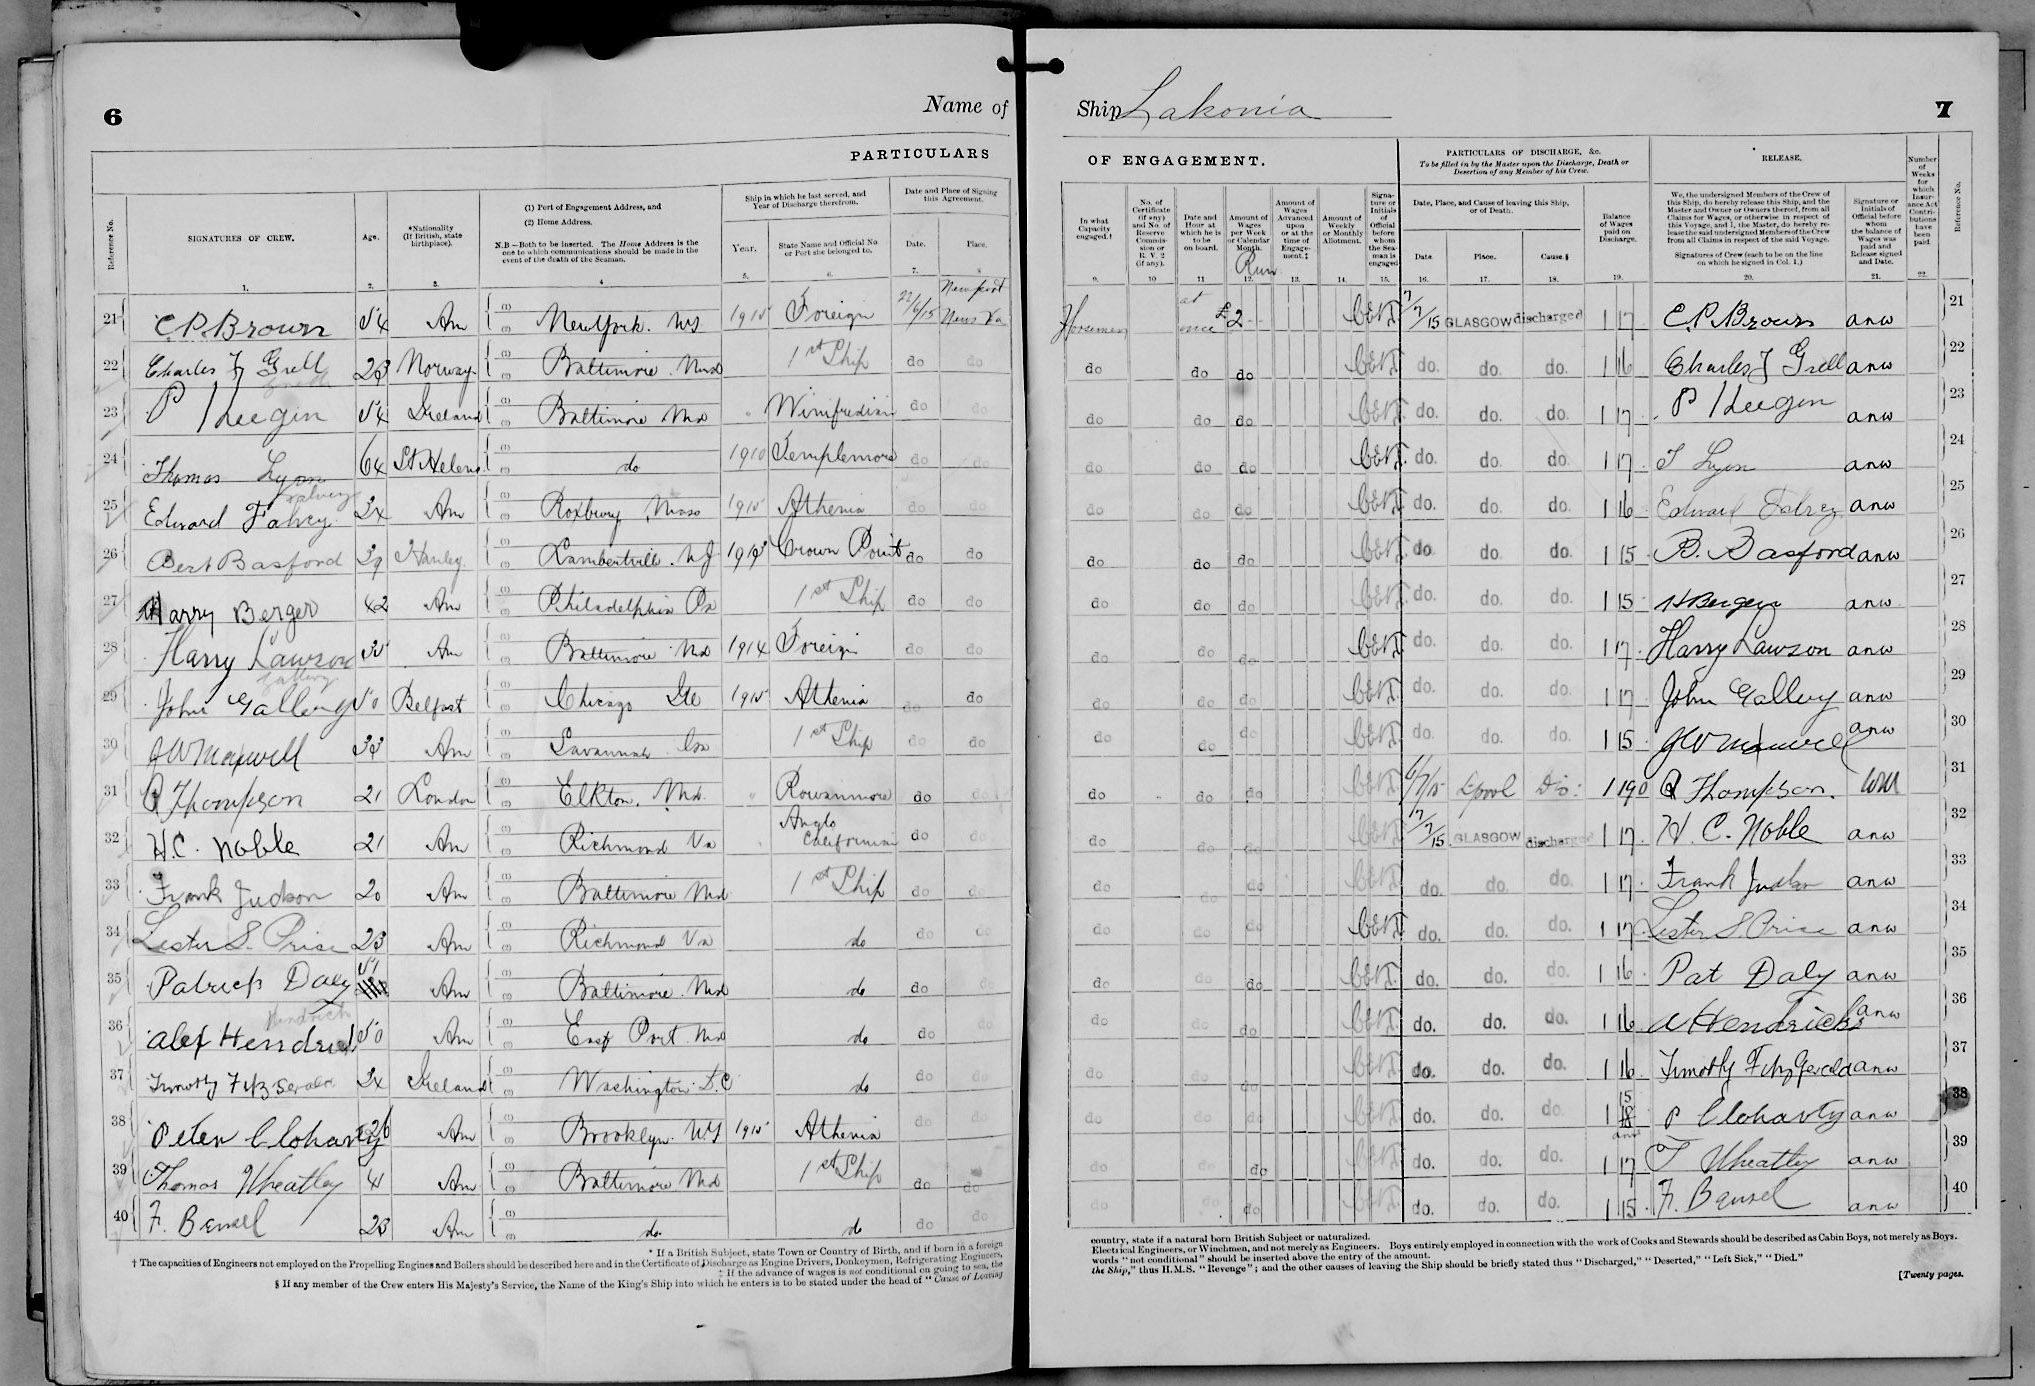 6
Name of
PARTICULARS
Reference No.
SIGNATURES OF CREW.
Age.
*Nationality (If British, state birthplace).
(1) Port of Engagement Address, and
(2) Home Address.
N.B.—Both to be inserted. The Home Address is the one to which communications should be made in the event of the death of the Seaman.
Ship in which he last served, and Year of Discharge therefrom.
Year.
State Name and Official No. or Port she belonged to.
Date and Place of Signing this Agreement.
Date.
Place.
1. 2. 3. 4 5. 6. 7. 8
21 C.P. Brown 54 Am New York. NY 1915 Foreign 22/6/15 Newport News Va
22 Charles J Grell 23 Norway Baltimore Md 1st Ship do do
23 P Keegin 54 Ireland Baltimore Md " Winifredian do do
24 Thomas Lyon 64 St Helens do 1910 Templemore do do
25 Edward Falvey 24 Am Roxbury Mass 1915 Athenia do do
26 Bert Basford 39 Hanley Lambertville. NJ 1913 Crown Point do do
27 Harry Berger 42 Am Philadelphia Pa 1st Ship do do
28 Harry Lawson 35 Am Baltimore Md 1914 Foreign do do
29 John Gallery 50 Belfast Chicago Ill 1915 Athenia do do
30 JW Maxwell 33 Am Savannah Ga 1st Ship do do
31 R Thompson 21 London Elkton. Md. " Rowanmore do do
32 H.C. Noble 21 Am Richmond Va " Anglo Californian do do
33 Frank Judson 20 Am Baltimore Md 1st Ship do do
34 Lester S. Price 23 Am Richmond Va do do do
35 Patrick Daly 51 Am Baltimore Md do do do
36 Alex Hendricks 50 Am East Port Md do do do
37 Timothy Fitzgerald 24 Ireland Washington D.C do do do
38 Peter Cloharty 26 Am Brooklyn NY 1915 Athenia do do
39 Thomas Wheatley 41 Am Baltimore Md 1st Ship do do
40 F. Bensel 23 Am do. do do do
* If a British Subject, state Town or Country of Birth, and if born in a foreign
† The capacities of Engineers not employed on the Propelling Engines and Boilers should be described here and in the Certificate of Discharge as Engine Drivers, Donkeymen, Refrigerating Engineers,
‡ If the advance of wages is not conditional on going to sea, the
§ If any member of the Crew enters His Majesty's Service, the Name of the King's Ship into which he enters is to be stated under the head of "Cause of Leaving
Ship Lakonia
7
OF ENGAGEMENT.
PARTICULARS OF DISCHARGE, &c.
To be filled in by the Master upon the Discharge, Death or Desertion of any Member of his Crew.
RELEASE.
In what Capacity engaged.†
No. of Certificate (if any) and No. of Reserve Commission or R. V. 2 (if any).
Date and Hour at which he is to be on board.
Amount of Wages per Week or Calendar Month.
Run
Amount of Wages Advanced upon or at the time of Engagement.‡
Amount of Weekly or Monthly Allotment.
Signature or Initials of Official before whom the Seaman is engaged
Date, Place, and Cause of leaving this Ship, or of Death.
Date.
Place.
Cause.§
Balance of Wages paid on Discharge.
We, the undersigned Members of the Crew of this Ship, do hereby release this Ship, and the Master and Owner or Owners thereof, from all Claims for Wages, or otherwise in respect of this Voyage, and I, the Master, do hereby release the said undersigned Members of the Crew from all Claims in respect of the said Voyage.
Signatures of Crew (each to be on the line on which he signed in Col. 1.)
Signature or Initials of Official before whom the balance of Wages was paid and Release signed and Date.
Number of Weeks for which Insurance Act Contributions have been paid.
Reference No.
9. 10 11 12. 13. 14. 15. 16. 17. 18. 19. 20. 21. 22.
Horseman at once £2 7/7/15 GLASGOW discharged 1 17 C.P. Brown anw 21
do do do do. do. do. 1 16 Charles J Grell anw 22
do do do do. do. do. 1 17 P Keegin anw 23
do do do do. do. do. 1 17 T Lyon anw 24
do do do do. do. do. 1 16 Edward Falvey anw 25
do do do do. do. do. 1 15 B. Basford anw 26
do do do do. do. do. 1 15 H Berger anw 27
do do do do. do. do. 1 17 Harry Lawson anw 28
do do do do. do. do. 1 17 John Gallery anw 29
do do do do. do. do. 1 15 JW Maxwell anw 30
do do do 6/7/15 Lpool Dis: 1 19 0 R Thompson. 31
do do do 7/7/15 GLASGOW discharged 1 17 H. C. Noble anw 32
do do do do. do. do. 1 17 Frank Judson anw 33
do do do do. do. do. 1 17 Lester S. Price anw 34
do do do do. do. do. 1 16 Pat Daly anw 35
do do do do. do. do. 1 16 A Hendricks anw 36
do do do do. do. do. 1 16 Timothy Fitzgerald anw 37
do do do do. do. do. 1 15 P Cloharty anw 38
do do do do. do. do. 1 17 T Wheatley anw 39
do do do do. do. do. 1 15 F. Bensel anw 40
country, state if a natural born British Subject or naturalized.
Electrical Engineers, or Winchmen, and not merely as Engineers. Boys entirely employed in connection with the work of Cooks and Stewards should be described as Cabin Boys, not merely as Boys.
words "not conditional" should be inserted above the entry of the amount.
the Ship," thus H.M.S. "Revenge"; and the other causes of leaving the Ship should be briefly stated thus "Discharged," "Deserted," "Left Sick," "Died."
[Twenty pages.